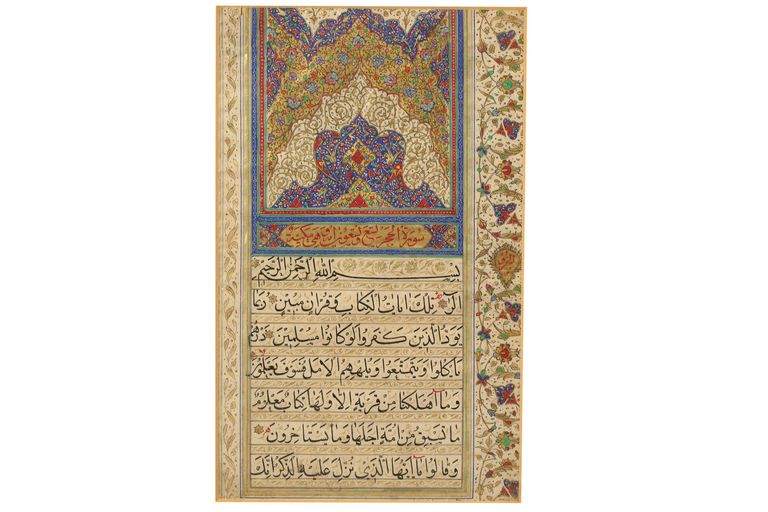 سورة الحجر تسع و تسعون اية و هي مكية
بسم الله الرحمن الرحيم
الر تلك ايات الكتاب و قران مبين ربما
يود الذين كفروا لو كانوا مسلمين ذرهم
ياكلوا و يتمتعوا و يلههم الامل فسوف يعلمون
وما اهلكنا من قرية الا ولها كتاب معلوم
ما تسبق من امة اجلها وما يستاخرون
وقالوا يا ايها الذي نزل عليه الذكر انك